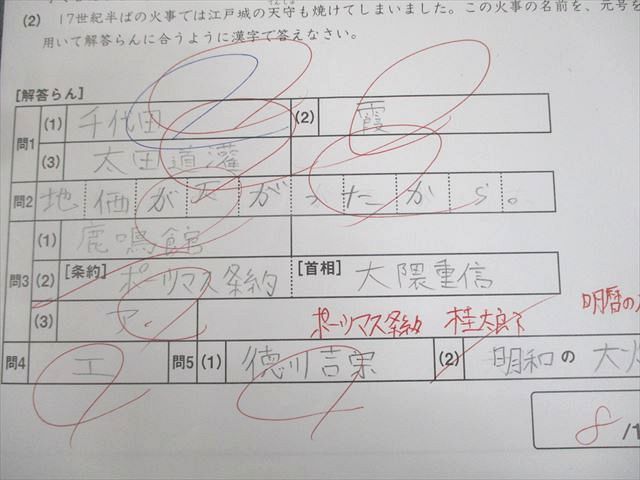 (2) 17世紀半ばの火事では江戸城の天守も焼けてしまいました。この火事の名前を、元号を
用いて解答らんに合うように漢字で答えなさい。
[解答らん]
問1 (1) 千代田 (2) 霞
(3) 太田道灌
問2 地価が下がったから。
(1) 鹿鳴館
問3 (2) [条約] ポーツマス条約 [首相] 大隈重信
(3) ア
ポーツマス条約 桂太郎 明暦の
問4 エ 問5 (1) 徳川吉宗 (2) 明和の大火
8 /1